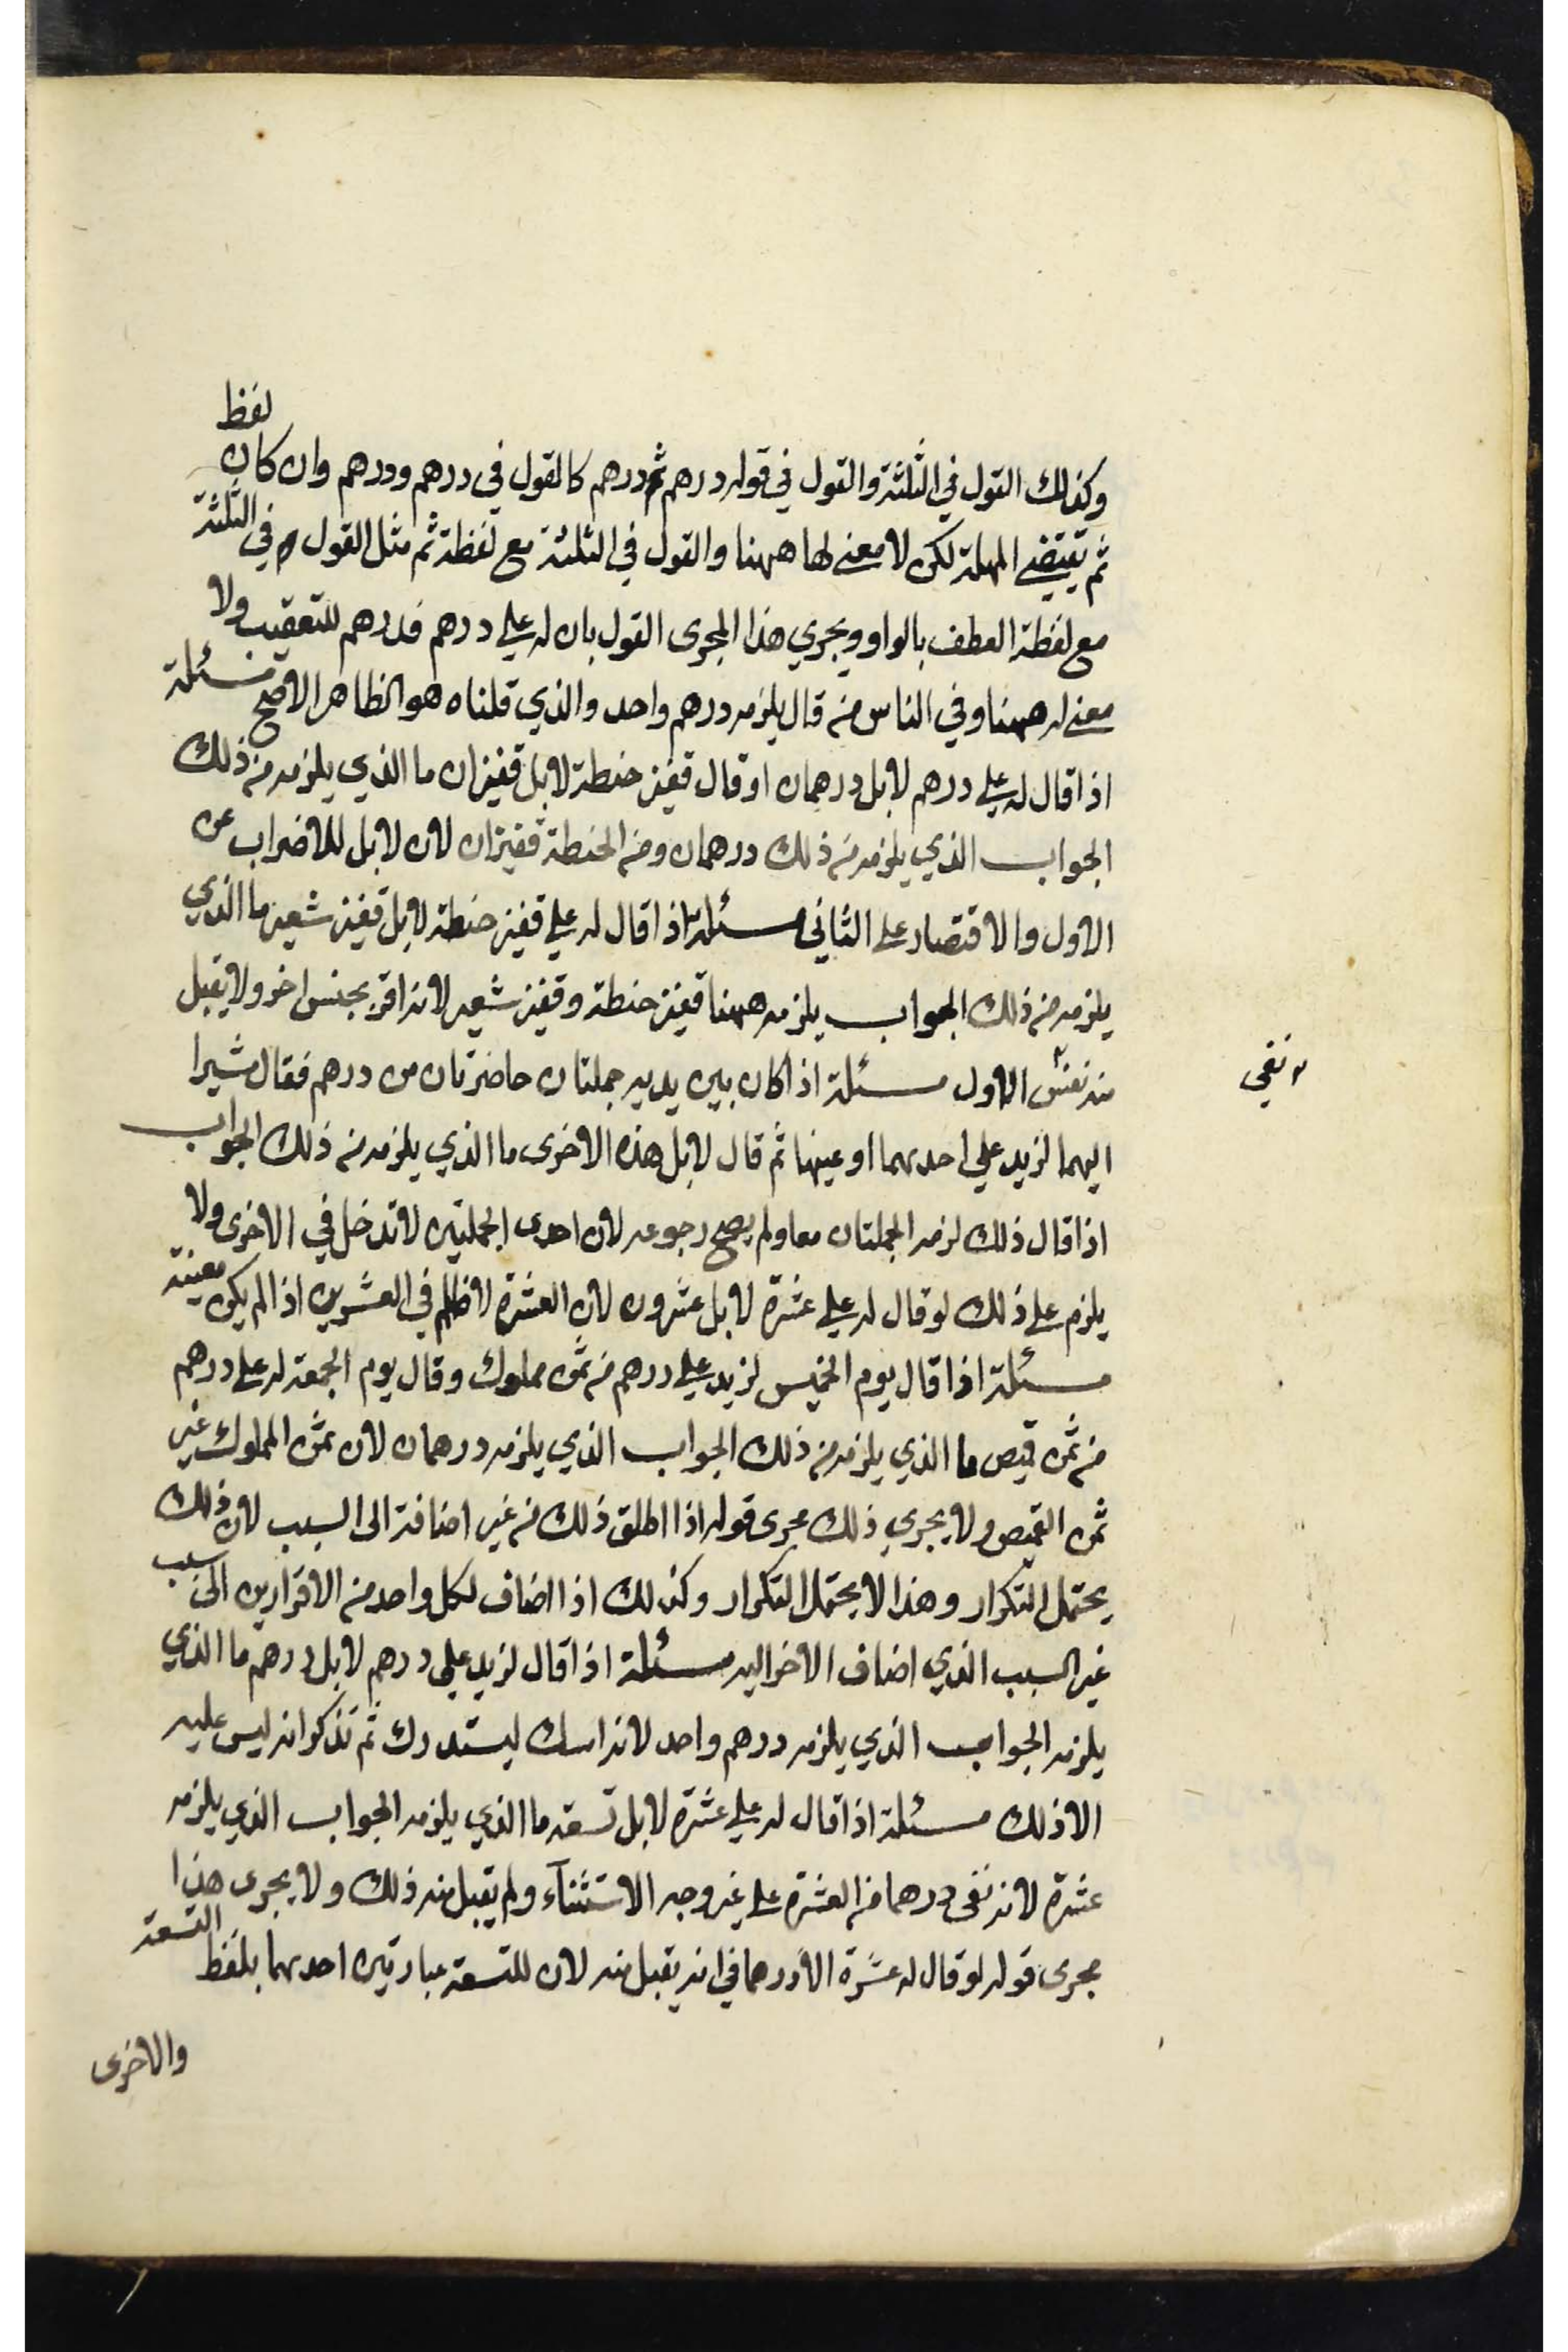 وكذلك القول في الثلثة والقول في قوله درهم ثم درهم كالقول في درهم ودرهم وان كان لفظ
ثم يقتضي المهلة لكن لا معنى لها ههنا والقول في الثلثة مع لفظة ثم مثل القول في الثلثة
مع لفظة العطف بالواو ويجري هذا المجرى القول بان له علي درهم فدرهم للتعقيب ولا
معنى له ههنا وفي الناس من قال يلزمه درهم واحد والذي قلناه هو الظاهر الاصح مسئلة
اذا قال له علي درهم لا بل درهمان او قال قفيز حنطة لا بل قفيزان ما الذي يلزمه من ذلك
الجواب الذي يلزمه من ذلك درهمان ومن الحنطة قفيزان لان لا بل للاضراب عن
الاول والاقتصار على الثاني مسئلة اذا قال له علي قفيز حنطة لا بل قفيز شعير ما الذي
يلزمه من ذلك الجواب يلزمه ههنا قفيز حنطة وقفيز شعير لانه اقر بجنس اخر ولا يقبل
منه نفس الاول مسئلة اذا كان بين يديه جملتان حاضرتان من درهم فقال مشيرا
نفي
اليهما لزيد علي احدىهما او عينها ثم قال لا بل هذه الاخرى ما الذي يلزمه من ذلك الجواب
اذا قال ذلك لزمه الجملتان معا ولم يصح رجوعه لان احدى الجملتين لا تدخل في الاخرى ولا
يلزم على ذلك لو قال له علي عشرة لا بل عشرون لان العشرة داخلة في العشرين اذا لم يكن معينة
مسئلة اذا قال يوم الخميس لزيد علي درهم من ثمن مملوك وقال يوم الجمعة له علي درهم
من ثمن قميص ما الذي يلزمه من ذلك الجواب الذي يلزمه درهمان لان ثمن المملوك غير
ثمن القميص ولا يجري ذلك مجرى قوله اذا اطلق ذلك من غير اضافة الى السبب لان ذلك
يحتمل التكرار وهذا لا يحتمل التكرار وكذلك اذا اضاف لكل واحد من الاقرارين الى سبب
غير السبب الذي اضاف الاخر اليه مسئلة اذا قال لزيد علي درهم لا بل درهم ما الذي
يلزمه الجواب الذي يلزمه درهم واحد لانه امسك ليستدرك ثم تذكر انه ليس عليه
الا ذلك مسئلة اذا قال له علي عشرة لا بل تسعة ما الذي يلزمه الجواب الذي يلزمه
عشرة لانه نفى درهما من العشرة على غير وجه الاستثناء ولم يقبل منه ذلك ولا يجرى هذا
مجرى قوله لو قال له عشرة الا درهما في انه يقبل منه لان للتسعة عبارتين احدىهما بلفظ التسعة
والاخرى